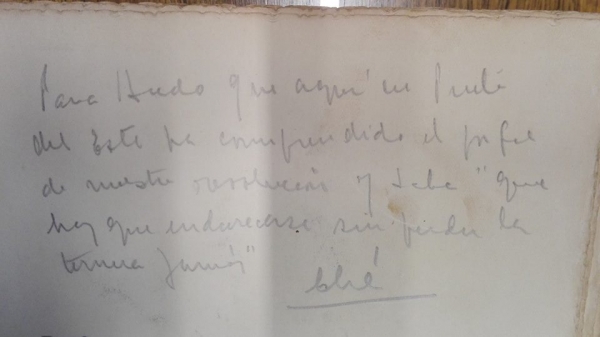 Para Hudo que aquí en Punta
del Este ha comprendido el
de nuestra revolución y sabe "que
hay que endurecerse sin perder la
ternura jamás"
Ché